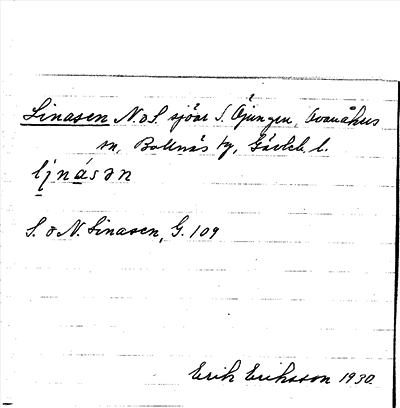 Linasen N. o S. sjöar S. Öjungen, Ovanåkers
sn, Bollnäs tg, Gävleb. l.
ljnásən
S. o N. Linasen, G. 109
Erik Eriksson 1930.